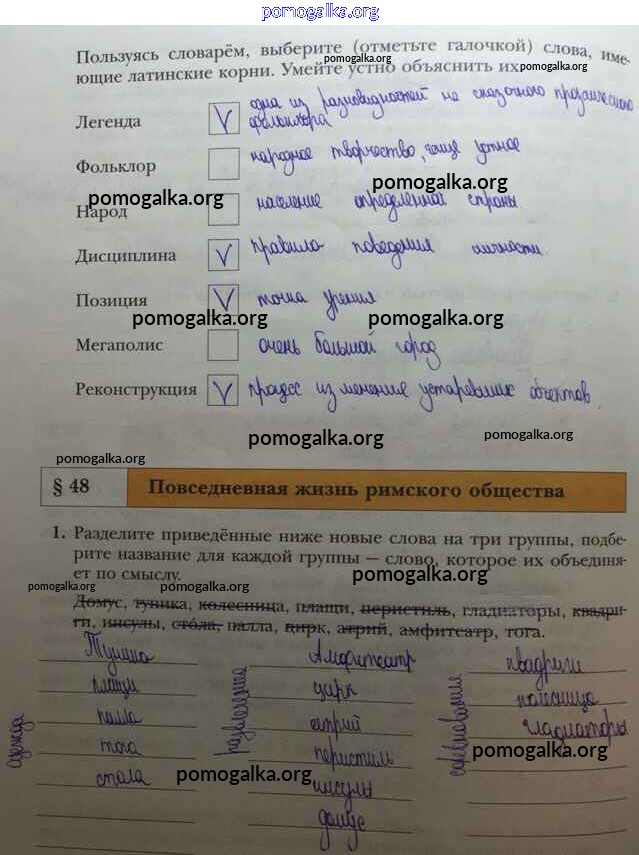 pomogalka.org
Пользуясь словарём, выберите (отметьте галочкой) слова, име-
ющие латинские корни. Умейте устно объяснить их
pomogalka.org
pomogalka.org
одна из разновидностей не сказочного прозаического
Легенда V фольклора
Фольклор народное творчество, чаще устное
pomogalka.org
pomogalka.org
Народ население определенной страны
Дисциплина V правило поведения личности.
Позиция V точка зрения
pomogalka.org pomogalka.org
Мегаполис очень большой город
Реконструкция V процесс изменения устаревших объектов.
pomogalka.org pomogalka.org
pomogalka.org
§ 48 Повседневная жизнь римского общества
1. Разделите приведённые ниже новые слова на три группы, подбе-
рите название для каждой группы — слово, которое их объединя-
ет по смыслу.
pomogalka.org
pomogalka.org pomogalka.org
Домус, туника, колесница, плащи, перистиль, гладиаторы, квадри-
ги, инсулы, стола, палла, цирк, атрий, амфитеатр, тога.
Туника Амфитеатр квадриги
плащи цирк колесница
палла атрий гладиаторы
тога перистиль
стола инсулы
домус
одежда развлечение соревнования
pomogalka.org
pomogalka.org